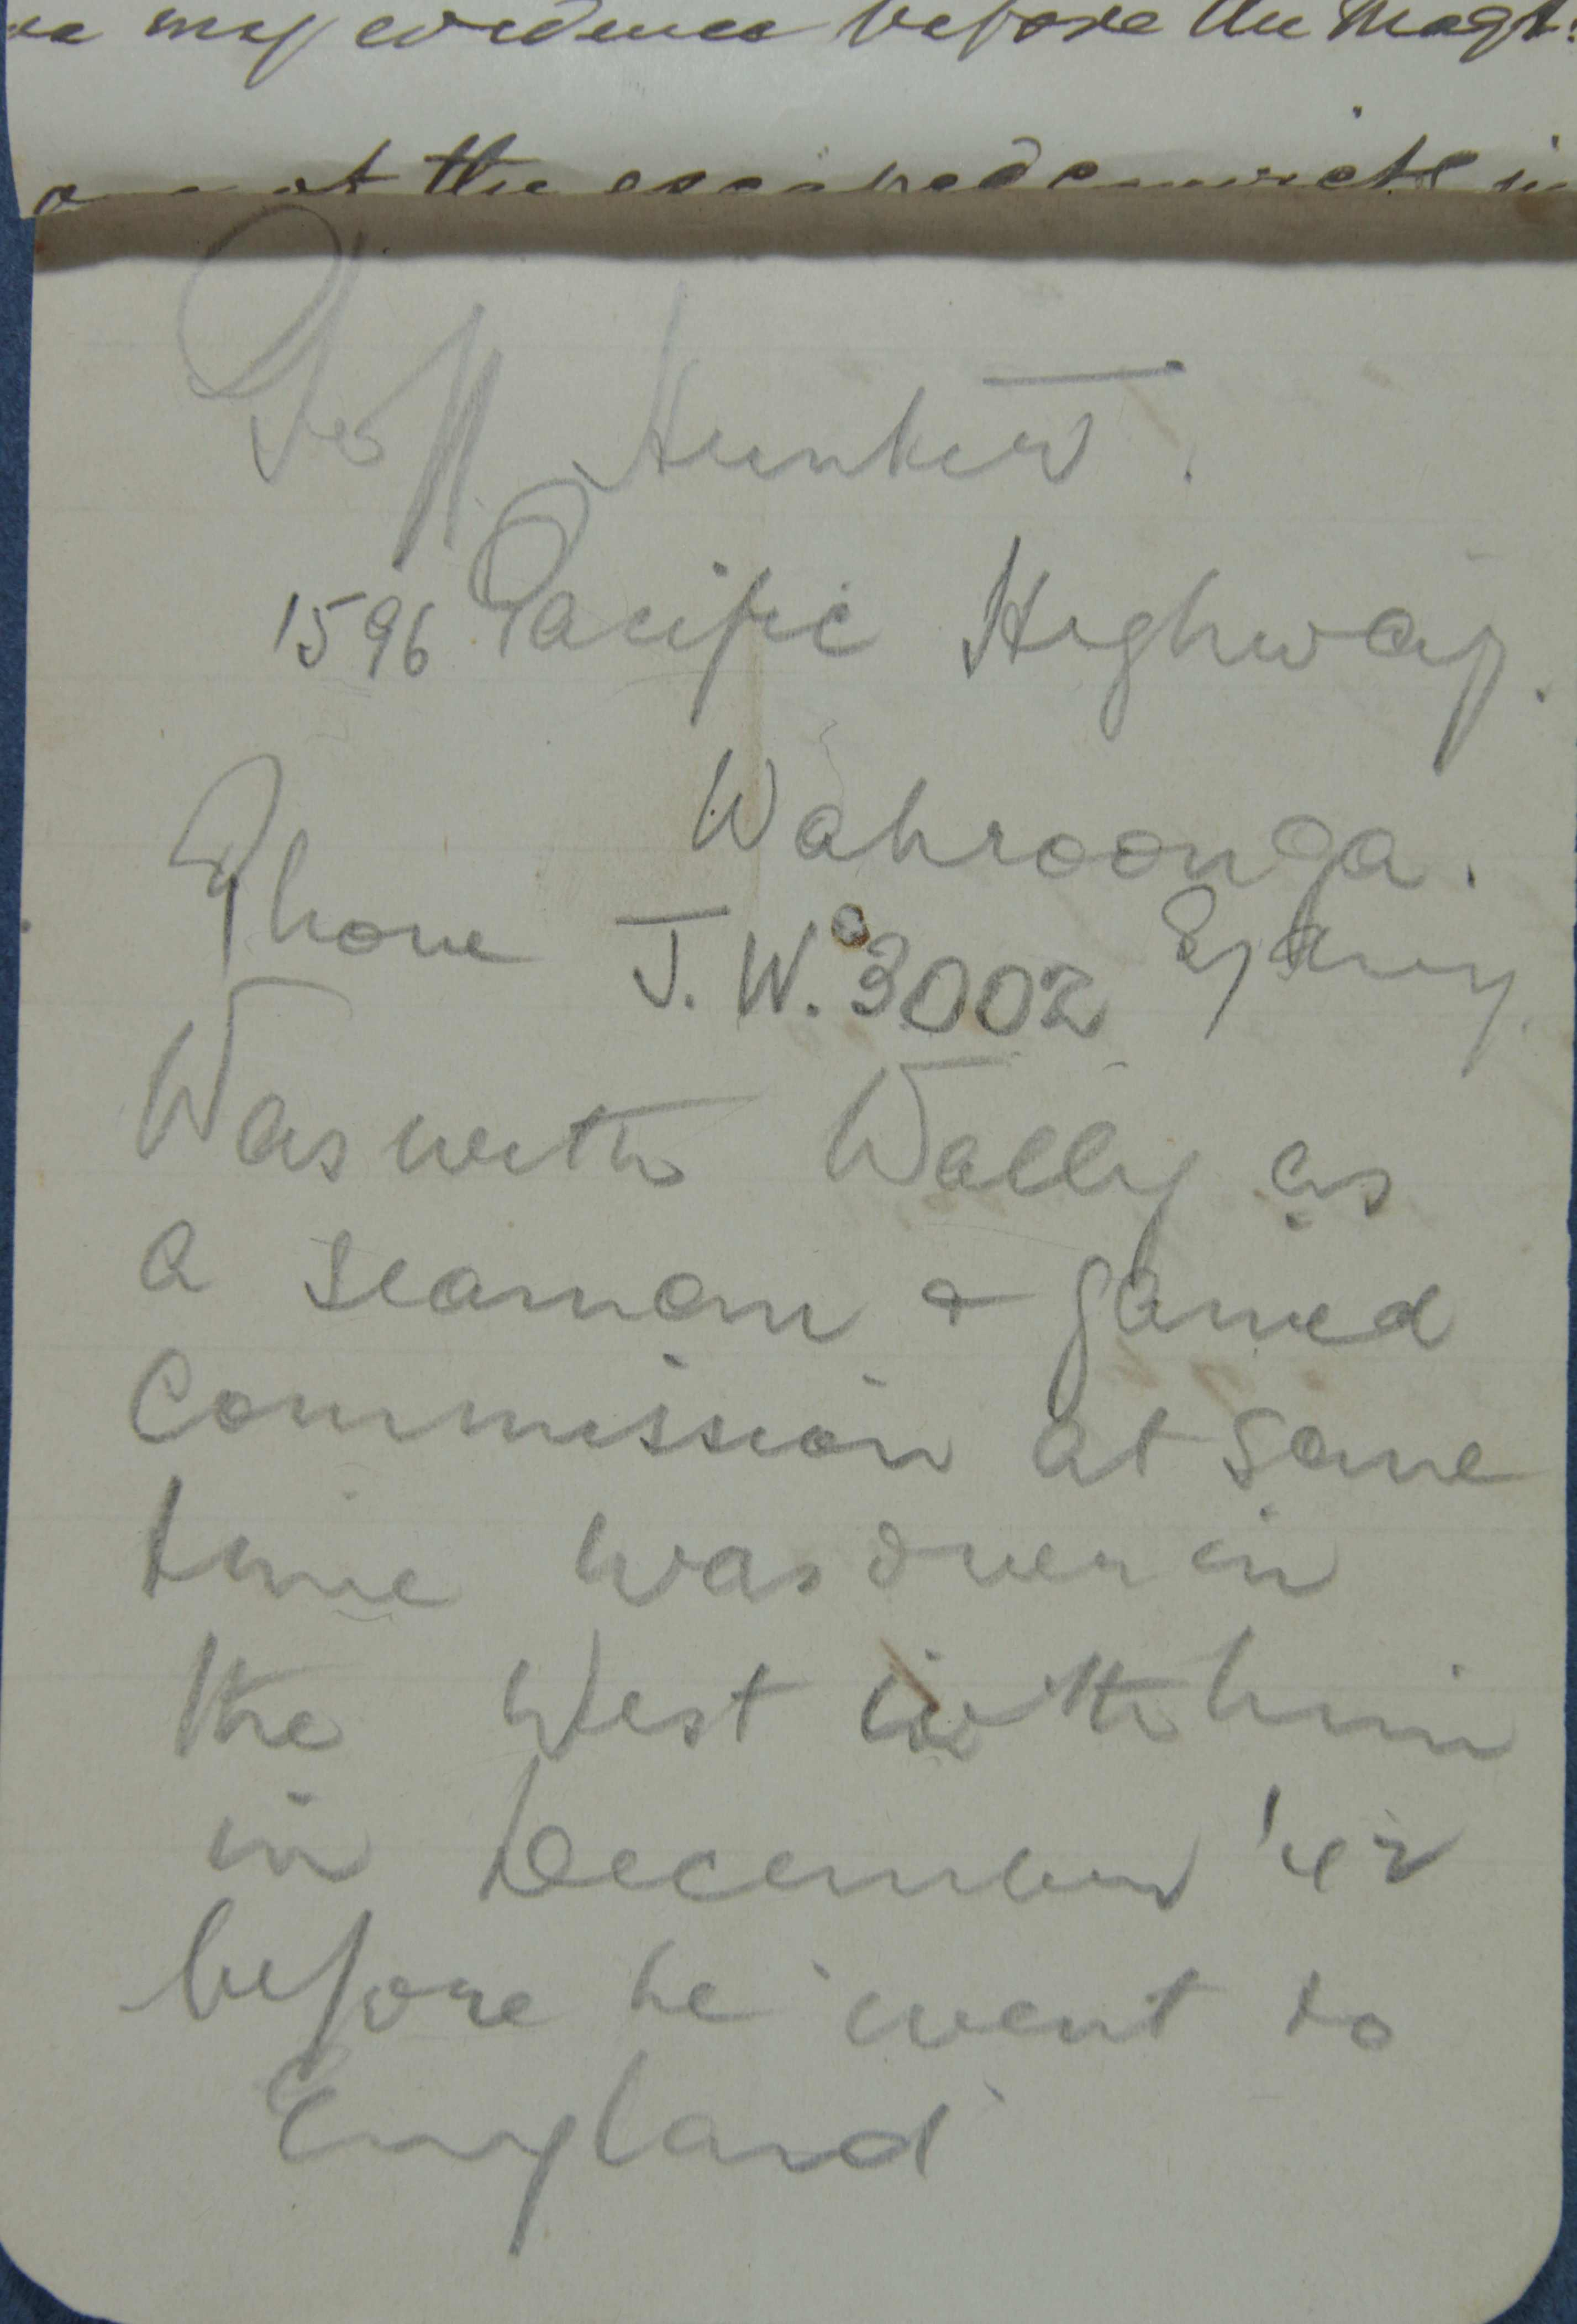 my evidence before the Magt.
of the escaped convicts in
Geoff Hunter.
1596 Pacific Highway.
Wahroonga.
Phone J.W. 3002 Sydney.
Was with Wally as
a seaman & gained
Commission at same
time was over in
the West with him
in December '42
before he went to
England